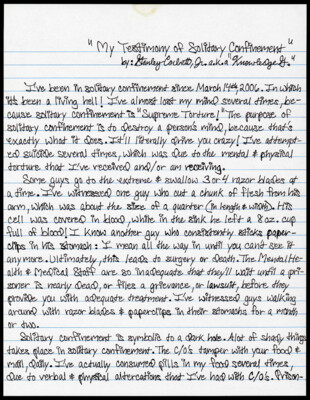 "My Testimony of Solitary Confinement"
by: Stanley Corbett, Jr. a.k.a "Knowledge Jr."
I've been in solitary confinement since March 14th, 2006. In which
it's been a living hell! I've almost lost my mind several times, be-
cause solitary confinement is "Supreme Torture!" The purpose of
solitary confinement is to destroy a person's mind, because that's
exactly what it does. It'll literally drive you crazy! I've attempt-
ed suicide several times, which was due to the mental & physical
torture that I've received and/or am receiving.
Some guys go to the extreme & swallow 3 or 4 razor blades at
a time. I've witnessed one guy who cut a chunk of flesh from his
arm, which was about the size of a quarter (in length & width). His
cell was covered in blood, while in the sink he left a 8 oz. cup
full of blood! I know another guy who consistently sticks paper-
clips in his stomach: I mean all the way in until you can't see it
anymore. Ultimately, this leads to surgery or death. The Mental He-
alth & Medical Staff are so inadequate that they'll wait until a pri-
soner is nearly dead, or files a grievance, or lawsuit, before they
provide you with adequate treatment. I've witnessed guys walking
around with razor blades & paperclips in their stomachs for a month
or two.
Solitary confinement is symbolic to a dark hole. Alot of shady things
takes place in solitary confinement. The C/O's tamper with your food &
mail, daily. I've actually consumed pills in my food several times,
due to verbal & physical altercations that I've had with C/O's. Prison-